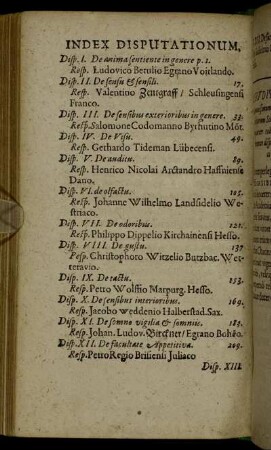 INDEX DISPUTATIONUM,
Disp. I. De anima sentiente in genere p. 1.
Resp. Ludovico Betulio Egrano Voitlando.
Disp. II. De sensu & sensili. 17.
Resp. Valentino Zentgraff / Schleusingensi
Franco.
Disp. III. De sensibus exterioribus in genere. 33.
Resp. Salomone Codomanno Byrhutino Môt.
Disp. IV. De Visu. 49.
Resp. Gerhardo Tideman Lûbecensi.
Disp. V. De auditu. 89.
Resp. Henrico Nicolai Arctandro Haffniense
Dano.
Disp. VI. de olfactu. 105.
Resp. Johanne Wilhelmo Landsidelio We-
tteraco.
Disp. VII. De odoribus. 121.
Resp. Philippo Dippelio Kirchainensi Hesso.
Disp. VIII. De gustu. 137
Resp. Christophoro Witzelio Butzbac. Wet-
teravio.
Disp. IX. De tactu. 153.
Resp. Petro Wolffio Marpurg. Hesso.
Disp. X. De sensibus interioribus. 169.
Resp. Jacobo Weddenio Halberstad. Sax.
Disp. XI. De somno vigilia & somniis. 185.
Resp. Johan. Ludov. Birckner / Egrano Bohêo.
Disp. XII. De facultate Appetitiva. 209.
Resp. Petro Regio Britiensi Juliaco
Disp. XIII.